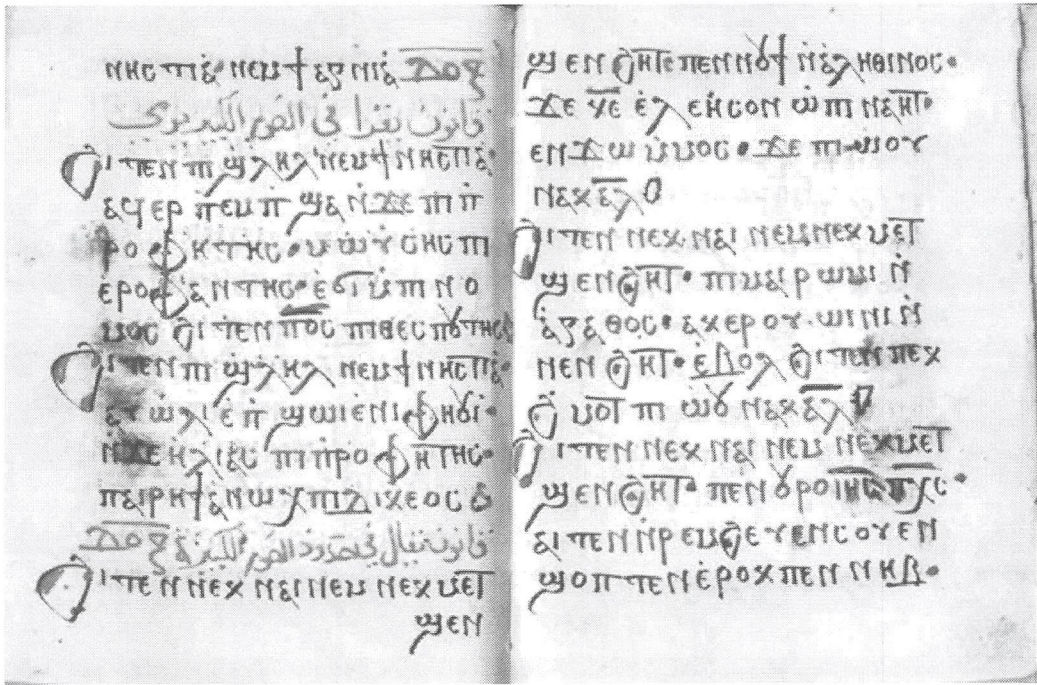 ⲛⲏⲥⲧⲓⲁ̀· ⲛⲉⲙϯⲁⲅⲛⲓⲁ̀ ⲇⲟⲝ
قانون تقرا في الصوم الكبير
ϩⲓⲧⲉⲛ ⲡⲓϣⲗⲏⲗ ⲛⲉⲙϯⲛⲏⲥⲧⲓⲁ·
ⲁϥⲉⲣ ⲡⲉⲙⲡϣⲁ ⲛ̀ϫⲉ ⲡⲓⲡ̀
ⲣⲟⲫⲏⲧⲏⲥ· ⲙⲱⲩⲥⲏⲥ ⲡⲓ
ⲉⲣⲟⲫⲉⲛⲧⲏⲥ· ⲉ̀ϭⲓⲙⲡⲓⲛⲟ
ⲙⲟⲥ ϩⲓⲧⲉⲛ ⲡⲟ̅ⲥ̅ ⲡⲓⲑⲉⲥⲡⲟⲩⲧⲏⲥ
ϩⲓⲧⲉⲛ ⲡⲓϣⲗⲏⲗ ⲛⲉⲙϯⲛⲏⲥⲧⲓⲁ·
ⲁⲩⲱⲗⲓ ⲉⲡ̀ϣⲱⲓ ⲉⲛⲓⲫⲏⲟⲩⲓ·
ⲛ̀ϫⲉ ⲏⲗⲓⲁⲥ ⲡⲓⲡⲣⲟⲫⲏⲧⲏⲥ·
ⲡⲁⲓⲣⲏϯ ⲉⲛⲱⲭ ⲡⲓⲇⲓⲕⲉⲟⲥ
قانون يقال في حدود الصوم الكبير ⲇⲟⲝ
ϩⲓⲧⲉⲛ ⲛⲉⲕ ⲛⲁⲓ ⲛⲉⲙ ⲛⲉⲕⲙⲉⲧ
ϣⲉⲛ
ϣⲉⲛϩⲏⲧ ⲡⲉⲛⲛⲟⲩϯ ⲛ̀ⲁⲗⲏⲑⲓⲛⲟⲥ·
ϫⲉ ⲕⲉ ⲉⲗⲉⲏⲥⲟⲛ
ⲉⲛϫⲱ ⲙⲙⲟⲥ· ϫⲉ ⲡⲓⲱⲟⲩ
ⲛⲁⲕ ⲁ̅ⲗ̅
ϩⲓⲧⲉⲛ ⲛⲉⲕ ⲛⲁⲓ ⲛⲉⲙ ⲛⲉⲕⲙⲉⲧ
ϣⲉⲛϩⲏⲧ· ⲡⲓⲙⲁⲓⲣⲱⲙⲓ ⲛ̀
ⲁ̀ⲅⲁⲑⲟⲥ· ⲁⲕⲉⲣⲟⲩⲱⲓⲛⲓ ⲛ̀
ⲛⲉⲛϩⲏⲧ· ⲉⲃⲟⲗ ϩⲓⲧⲉⲛ ⲡⲉⲕ
ϩⲙⲟⲧ ⲡⲓ ⲱⲟⲩ ⲛⲁⲕ ⲁ̅ⲗ̅
ϩⲓⲧⲉⲛ ⲛⲉⲕ ⲛⲁⲓ ⲛⲉⲙ ⲛⲉⲕⲙⲉⲧ
ϣⲉⲛϩⲏⲧ· ⲡⲉⲛⲟⲩⲣⲟ ⲓⲏ̅ⲥ̅ ⲡ̅ⲭ̅ⲥ̅·
ⲁⲓⲧⲉⲛ ⲛ̀ⲣⲉⲙϩⲉⲩⲉⲛⲥⲟⲩⲉⲛ
ϣⲟⲡⲧⲉⲛ ⲉ̀ⲣⲟⲕ ⲡⲉⲛ ⲛⲏⲃ·